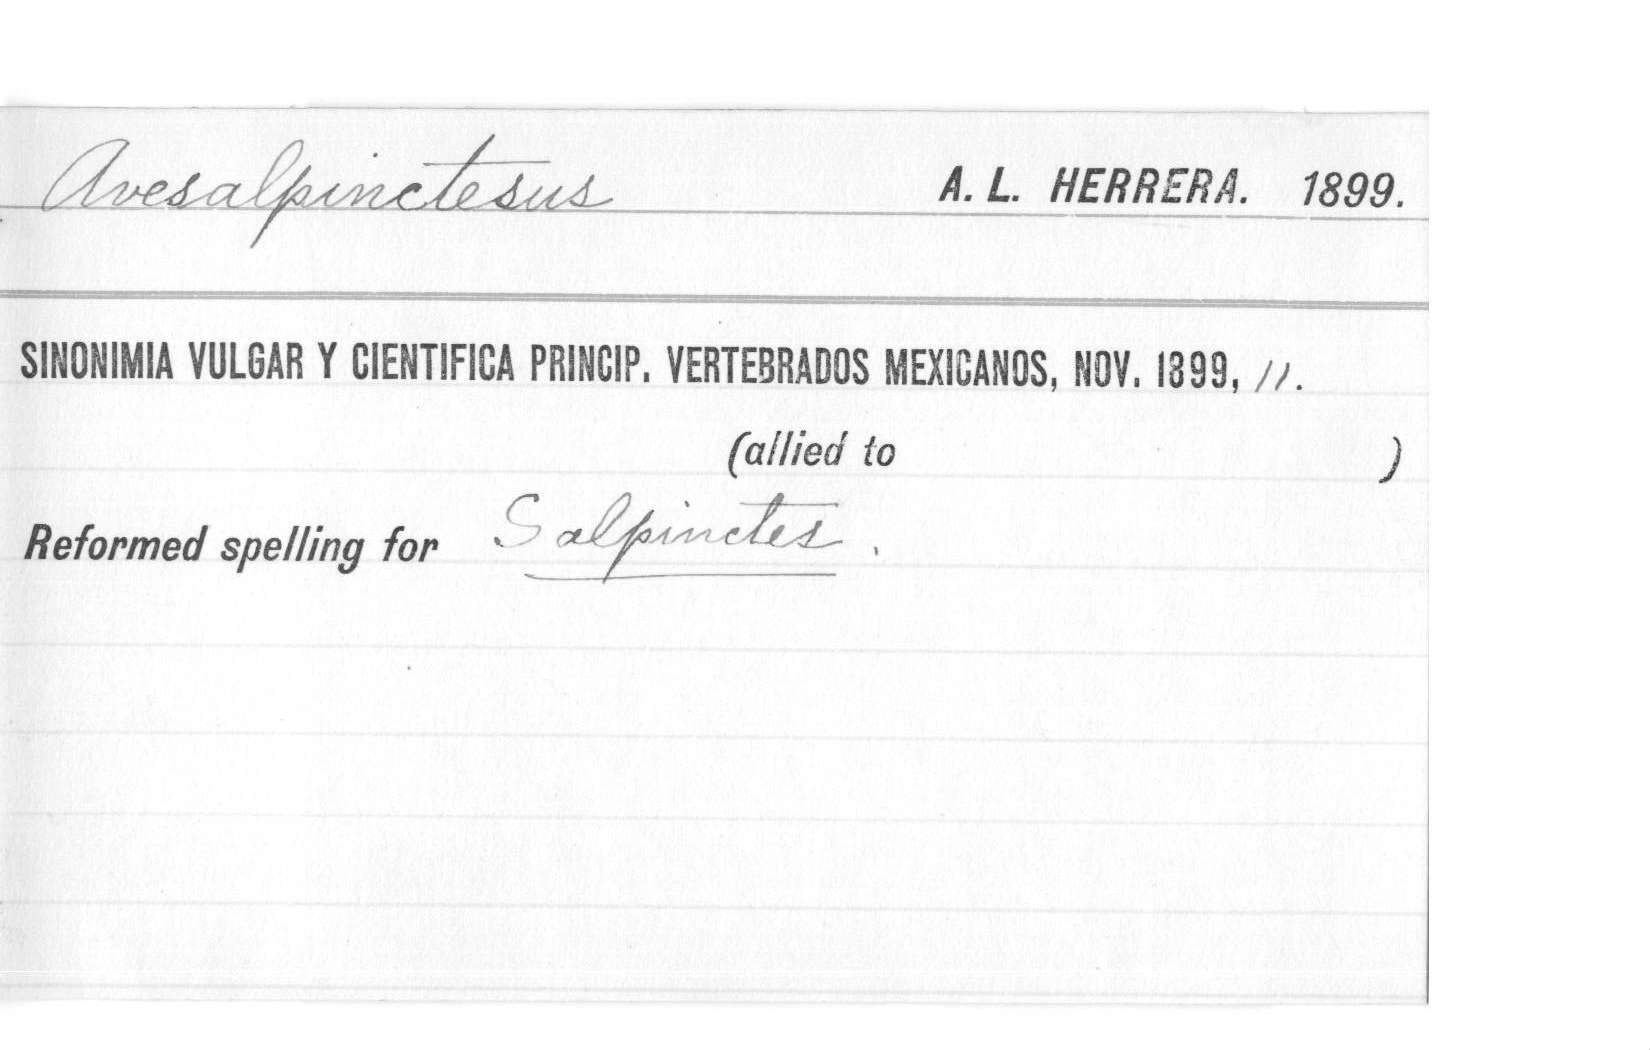 Avesalpinctesus A. L. HERRERA. 1899.
SINONIMIA VULGAR Y CIENTIFICA PRINCIP. VERTEBRADOS MEXICANOS, NOV. 1899, 11.
(allied to )
Reformed spelling for Salpinctes.